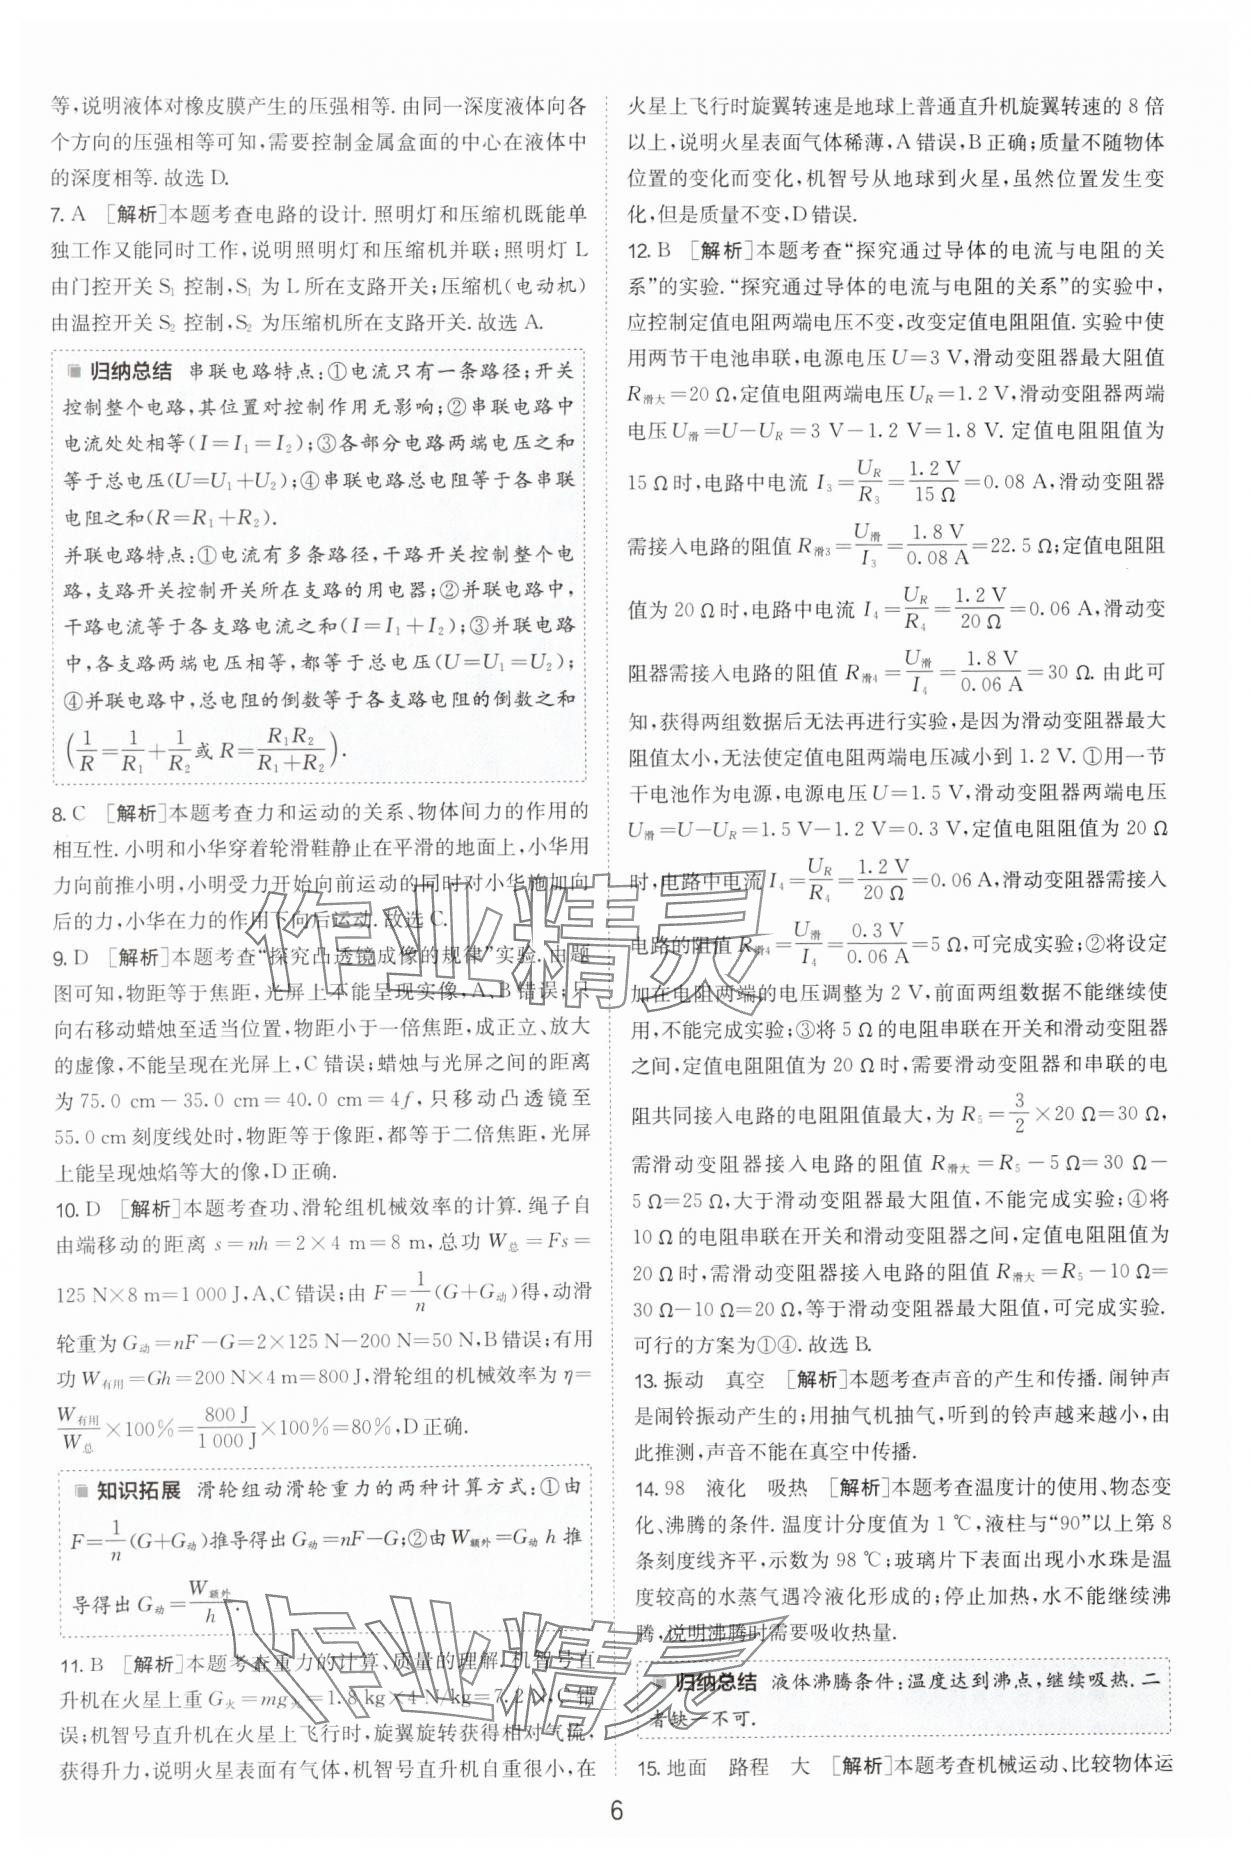 等,说明液体对橡皮膜产生的压强相等. 由同一深度液体向各
个方向的压强相等可知,需要控制金属盒面的中心在液体中
的深度相等. 故选 D.
7. A [解析]本题考查电路的设计. 照明灯和压缩机既能单
独工作又能同时工作,说明照明灯和压缩机并联;照明灯 L
由门控开关 S₁ 控制,S₁ 为 L 所在支路开关;压缩机(电动机)
由温控开关 S₂ 控制,S₂ 为压缩机所在支路开关. 故选 A.
归纳总结 串联电路特点:①电流只有一条路径;开关
控制整个电路,其位置对控制作用无影响;②串联电路中
电流处处相等(I=I₁=I₂);③各部分电路两端电压之和
等于总电压(U=U₁+U₂);④串联电路总电阻等于各串联
电阻之和(R=R₁+R₂).
并联电路特点:①电流有多条路径,干路开关控制整个电
路,支路开关控制开关所在支路的用电器;②并联电路中,
干路电流等于各支路电流之和(I=I₁+I₂);③并联电路
中,各支路两端电压相等,都等于总电压(U=U₁=U₂);
④并联电路中,总电阻的倒数等于各支路电阻的倒数之和
(1/R=1/R₁+1/R₂或 R=R₁R₂/(R₁+R₂)).
8. C [解析]本题考查力和运动的关系、物体间力的作用的
相互性. 小明和小华穿着轮滑鞋静止在平滑的地面上,小华用
力向前推小明,小明受力开始向前运动的同时对小华施加向
后的力,小华在力的作用下向后运动. 故选 C.
9. D [解析]本题考查“探究凸透镜成像的规律”实验. 由题
图可知,物距等于焦距,光屏上不能呈现实像,A、B 错误;只
向右移动蜡烛至适当位置,物距小于一倍焦距,成正立、放大
的虚像,不能呈现在光屏上,C 错误;蜡烛与光屏之间的距离
为 75.0 cm-35.0 cm=40.0 cm=4f,只移动凸透镜至
55.0 cm 刻度线处时,物距等于像距,都等于二倍焦距,光屏
上能呈现烛焰等大的像,D 正确.
10. D [解析]本题考查功、滑轮组机械效率的计算. 绳子自
由端移动的距离 s=nh=2×4 m=8 m,总功 W总=Fs=
125 N×8 m=1 000 J,A、C 错误;由 F=1/n(G+G动)得,动滑
轮重为 G动=nF-G=2×125 N-200 N=50 N,B 错误;有用
功 W有用=Gh=200 N×4 m=800 J,滑轮组的机械效率为 η=
W有用/W总×100%=800 J/1 000 J×100%=80%,D 正确.
知识拓展 滑轮组动滑轮重力的两种计算方式:①由
F=1/n(G+G动)推导得出 G动=nF-G;②由 W额外=G动 h 推
导得出 G动=W额外/h.
11. B [解析]本题考查重力的计算、质量的理解. 机智号直
升机在火星上重 G火=mg火=1.8 kg×4 N/kg=7.2 N,C 错
误;机智号直升机在火星上飞行时,旋翼旋转获得相对气流,
获得升力,说明火星表面有气体,机智号直升机自重很小,在
火星上飞行时旋翼转速是地球上普通直升机旋翼转速的 8 倍
以上,说明火星表面气体稀薄,A 错误,B 正确;质量不随物体
位置的变化而变化,机智号从地球到火星,虽然位置发生变
化,但是质量不变,D 错误.
12. B [解析]本题考查“探究通过导体的电流与电阻的关
系”的实验. “探究通过导体的电流与电阻的关系”的实验中,
应控制定值电阻两端电压不变,改变定值电阻阻值. 实验中使
用两节干电池串联,电源电压 U=3 V,滑动变阻器最大阻值
R滑大=20 Ω,定值电阻两端电压 UR=1.2 V,滑动变阻器两端
电压 U滑=U-UR=3 V-1.2 V=1.8 V. 定值电阻阻值为
15 Ω 时,电路中电流 I₃=UR/R₃=1.2 V/15 Ω=0.08 A,滑动变阻器
需接入电路的阻值 R滑3=U滑/I₃=1.8 V/0.08 A=22.5 Ω;定值电阻阻
值为 20 Ω 时,电路中电流 I₄=UR/R₄=1.2 V/20 Ω=0.06 A,滑动变
阻器需接入电路的阻值 R滑4=U滑/I₄=1.8 V/0.06 A=30 Ω. 由此可
知,获得两组数据后无法再进行实验,是因为滑动变阻器最大
阻值太小,无法使定值电阻两端电压减小到 1.2 V. ①用一节
干电池作为电源,电源电压 U=1.5 V,滑动变阻器两端电压
U滑=U-UR=1.5 V-1.2 V=0.3 V,定值电阻阻值为 20 Ω
时,电路中电流 I₄=UR/R₄=1.2 V/20 Ω=0.06 A,滑动变阻器需接入
电路的阻值 R滑4=U滑/I₄=0.3 V/0.06 A=5 Ω,可完成实验;②将设定
加在电阻两端的电压调整为 2 V,前面两组数据不能继续使
用,不能完成实验;③将 5 Ω 的电阻串联在开关和滑动变阻器
之间,定值电阻阻值为 20 Ω 时,需要滑动变阻器和串联的电
阻共同接入电路的电阻阻值最大,为 R₅=3/2×20 Ω=30 Ω,
需滑动变阻器接入电路的阻值 R滑大=R₅-5 Ω=30 Ω-
5 Ω=25 Ω,大于滑动变阻器最大阻值,不能完成实验;④将
10 Ω 的电阻串联在开关和滑动变阻器之间,定值电阻阻值为
20 Ω 时,需滑动变阻器接入电路的阻值 R滑大=R₅-10 Ω=
30 Ω-10 Ω=20 Ω,等于滑动变阻器最大阻值,可完成实验.
可行的方案为①④. 故选 B.
13. 振动 真空 [解析]本题考查声音的产生和传播. 闹钟声
是闹铃振动产生的;用抽气机抽气,听到的铃声越来越小,由
此推测,声音不能在真空中传播.
14. 98 液化 吸热 [解析]本题考查温度计的使用、物态变
化、沸腾的条件. 温度计分度值为 1 ℃,液柱与“90”以上第 8
条刻度线齐平,示数为 98 ℃;玻璃片下表面出现小水珠是温
度较高的水蒸气遇冷液化形成的;停止加热,水不能继续沸
腾,说明沸腾时需要吸收热量.
归纳总结 液体沸腾条件:温度达到沸点,继续吸热. 二
者缺一不可.
15. 地面 路程 大 [解析]本题考查机械运动、比较物体运
6
作业精灵
作业精灵